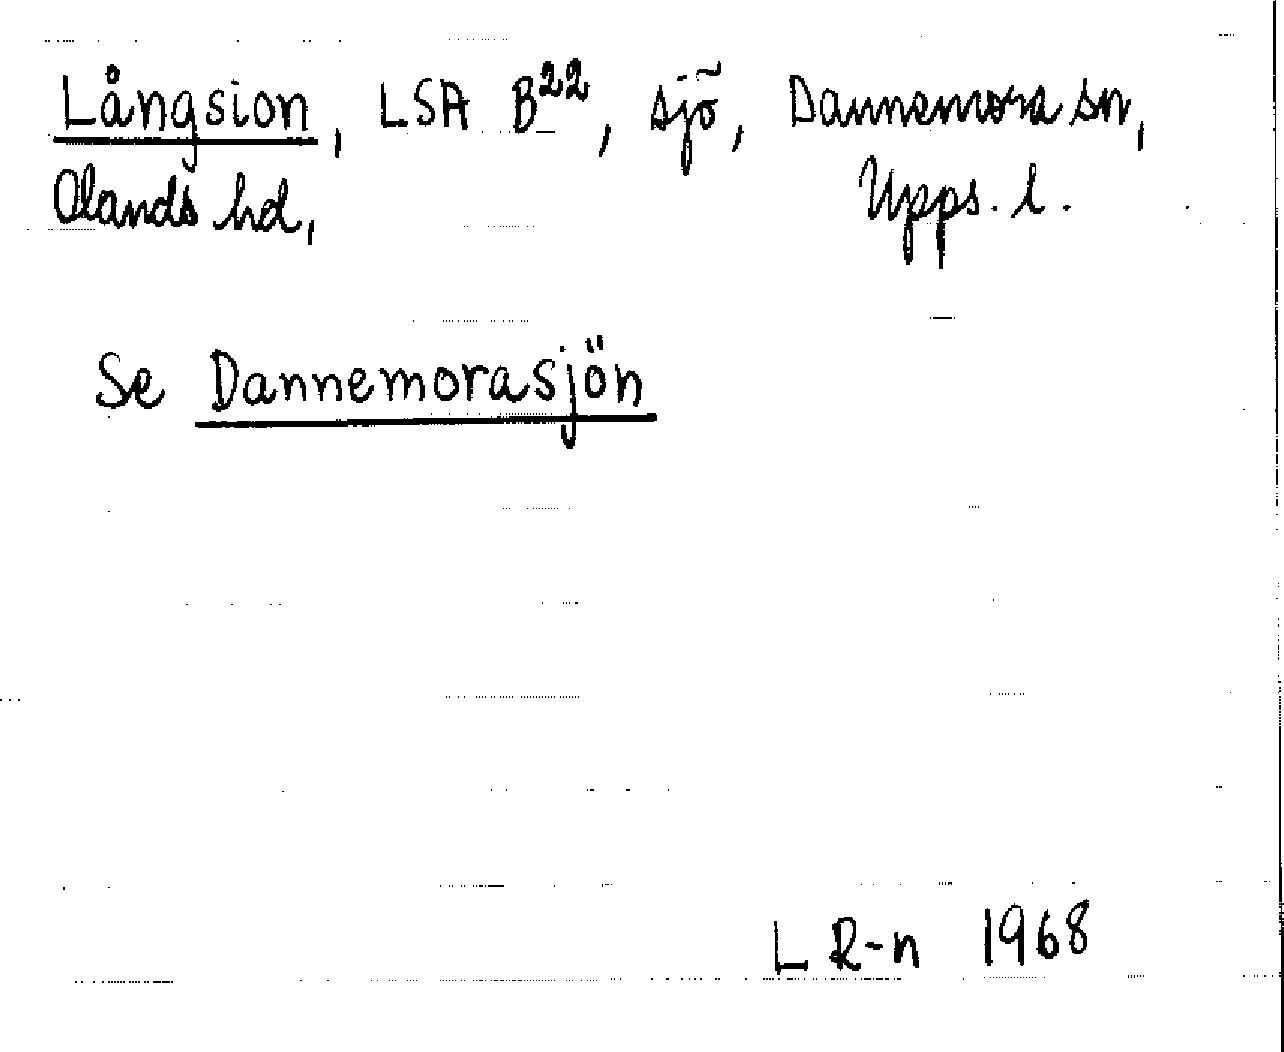 Långsion, LSA B²², sjö, Dannemora sn,
Olands hd, Upps. l.
Se Dannemorasjön
L R-n 1968